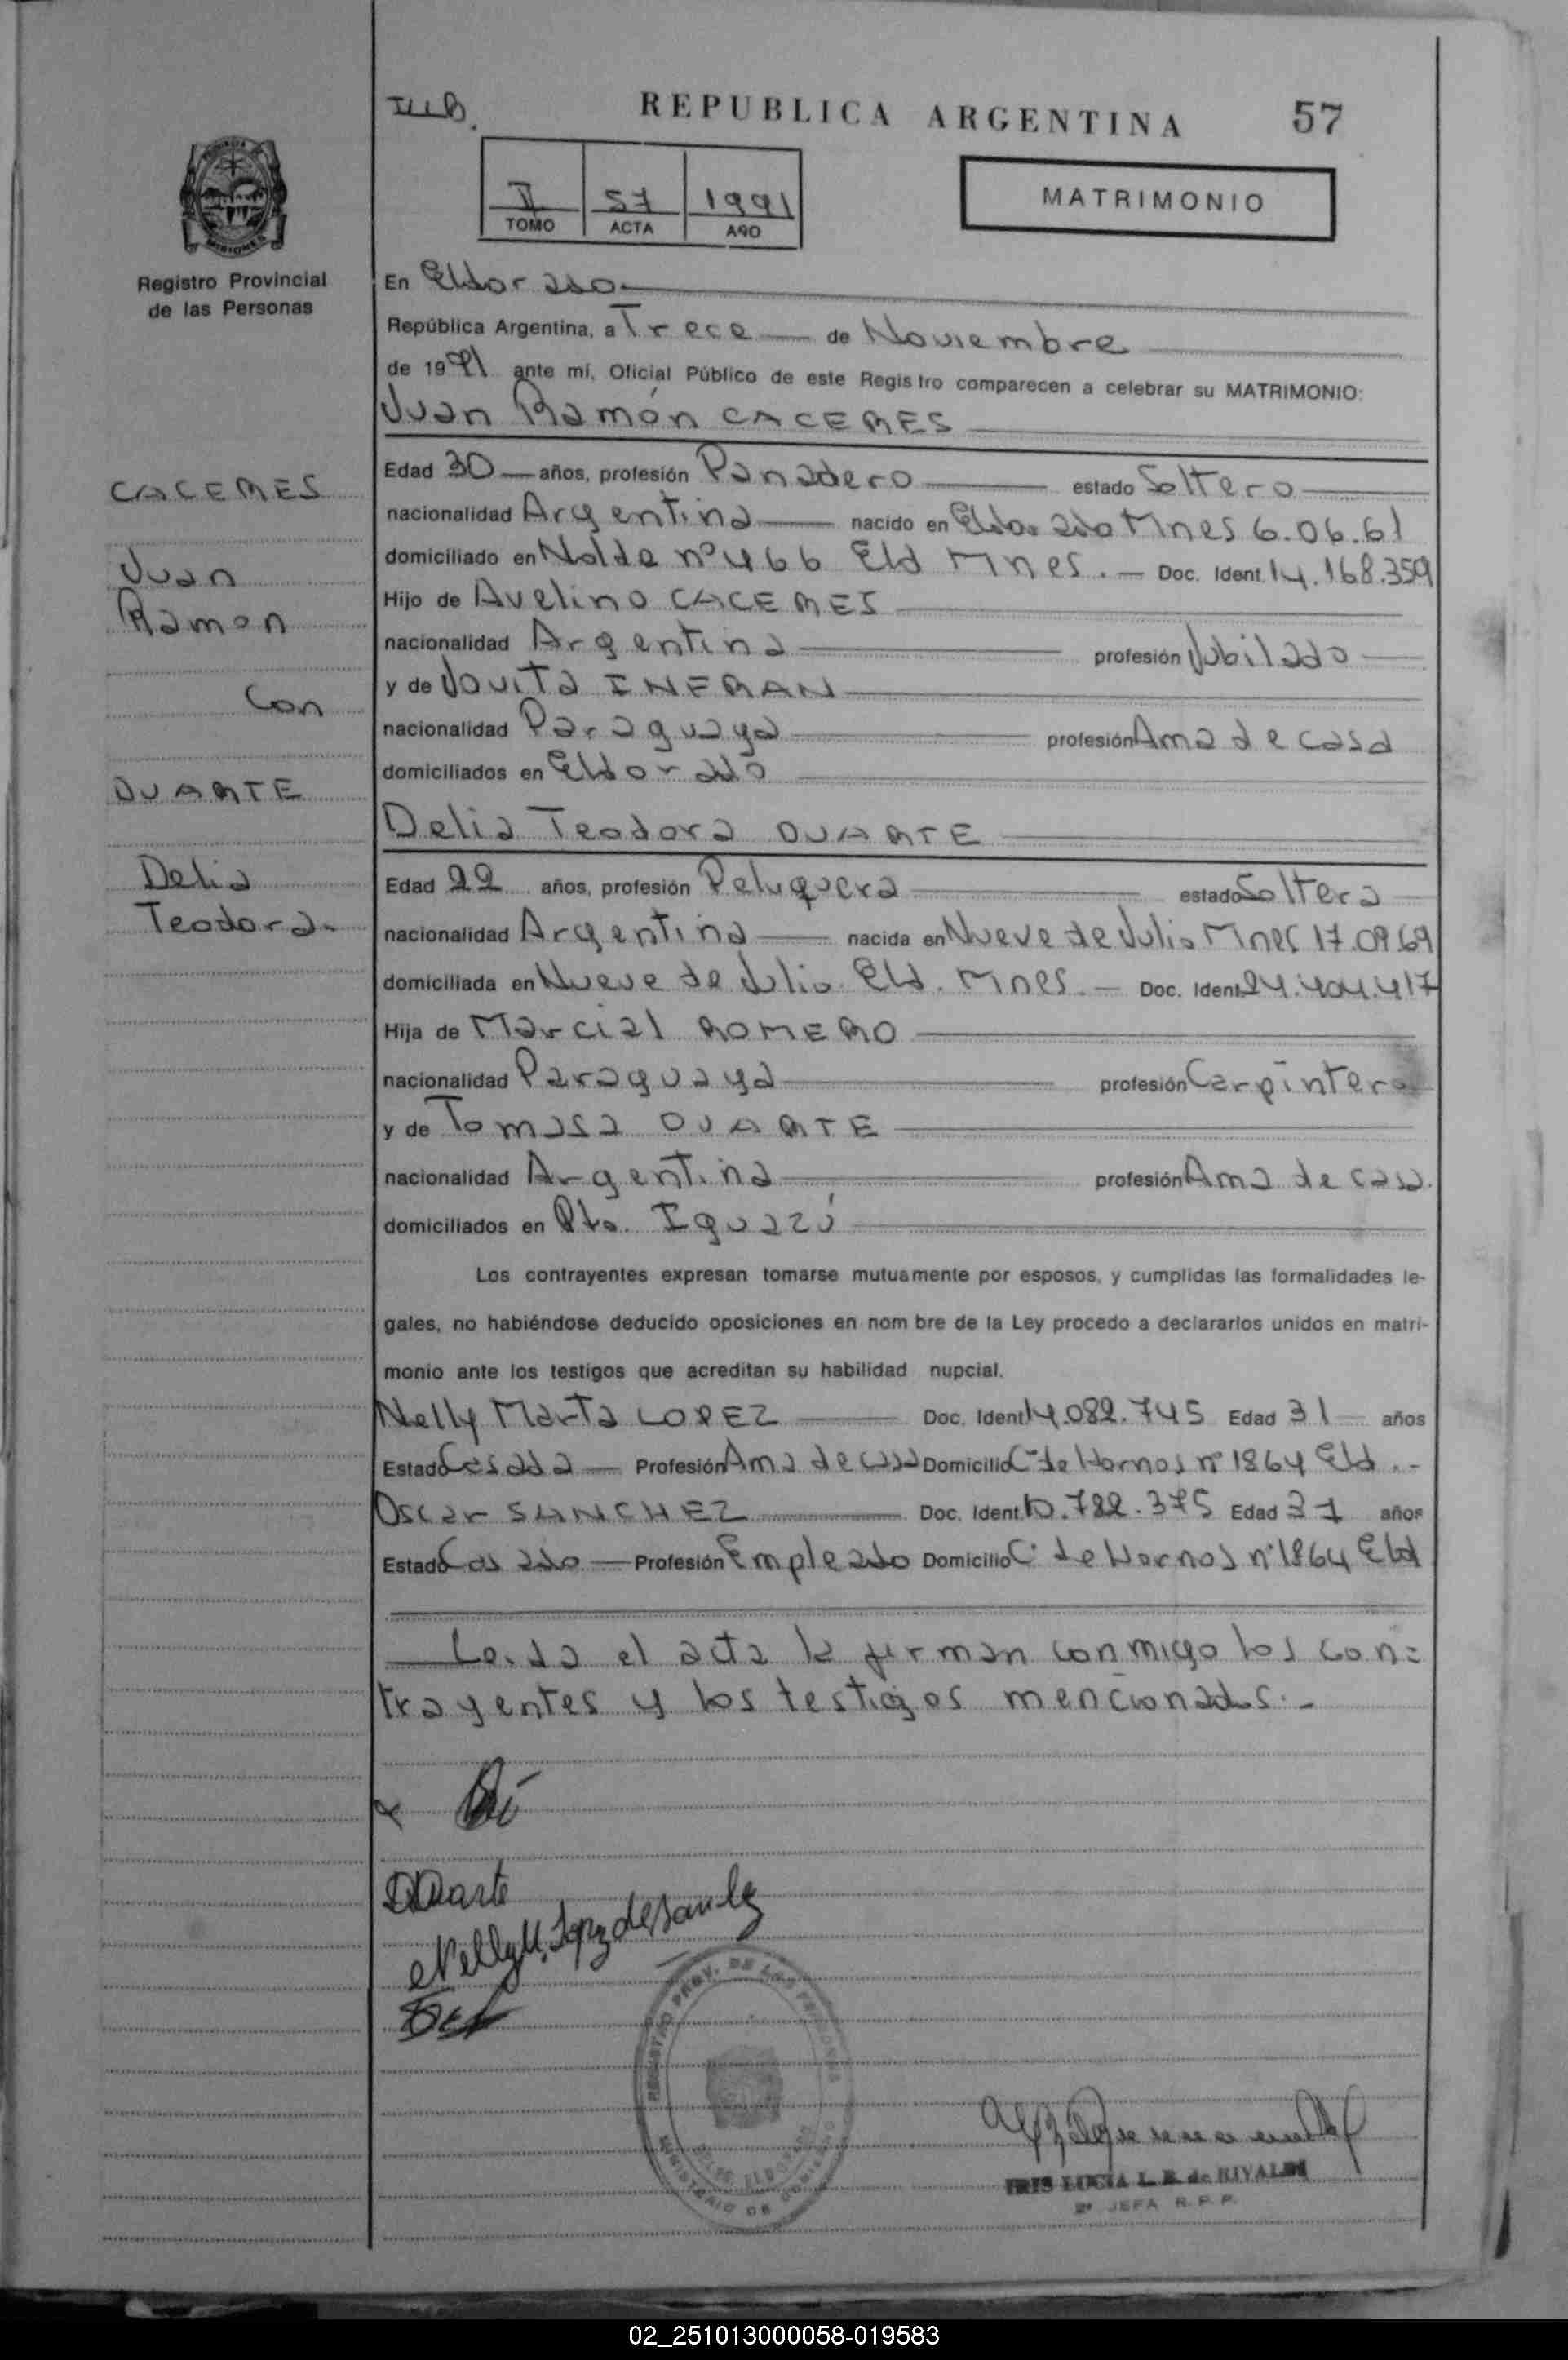 REPUBLICA ARGENTINA
57
II 57 1991
TOMO ACTA AÑO
MATRIMONIO
PROVINCIA DE
MISIONES
Registro Provincial
de las Personas
En Eldorado
República Argentina, a Trece de Noviembre
de 1991 ante mí, Oficial Público de este Registro comparecen a celebrar su MATRIMONIO:
Juan Ramón CACERES
Edad 30 años, profesión Panadero estado Soltero
nacionalidad Argentina nacido en Eldorado Mnes 6.06.61
domiciliado en Nolde nº 466 Eld Mnes. Doc. Ident. 14.168.359
Hijo de Avelino CACERES
nacionalidad Argentina profesión Jubilado
y de Jovita INFRAN
nacionalidad Paraguaya profesión Ama de casa
domiciliados en Eldorado
Delia Teodora DUARTE
Edad 22 años, profesión Peluquera estado Soltera
nacionalidad Argentina nacida en Nueve de Julio Mnes 17.09.69
domiciliada en Nueve de Julio Eld. Mnes. Doc. Ident 24.404.417
Hija de Marcial ROMERO
nacionalidad Paraguaya profesión Carpintero
y de Tomasa DUARTE
nacionalidad Argentina profesión Ama de casa.
domiciliados en Pto. Iguazú
CACERES
Juan
Ramon
Con
DUARTE
Delia
Teodora.
Los contrayentes expresan tomarse mutuamente por esposos, y cumplidas las formalidades le-
gales, no habiéndose deducido oposiciones en nom bre de la Ley procedo a declararlos unidos en matri-
monio ante los testigos que acreditan su habilidad nupcial.
Nelly Marta LOPEZ Doc. Ident 14.082.745 Edad 31 años
Estado Casada Profesión Ama de casa Domicilio C de Hornos nº 1864 Eld.
Oscar SANCHEZ Doc. Ident 10.782.375 Edad 37 años
Estado Casado Profesión Empleado Domicilio C. de Hornos nº 1864 Eld
Leida el acta la firman conmigo los con=
trayentes y los testigos mencionados.-
DDuarte
Nelly M. Lopez de Sanchez
REGISTRO PROV. DE LAS PERSONAS
DELEG. ELDORADO
MINISTERIO DE GOBIERNO
IRIS LUCIA L. B. de RIVALDI
2ª JEFA R. P. P.
02_251013000058-019583